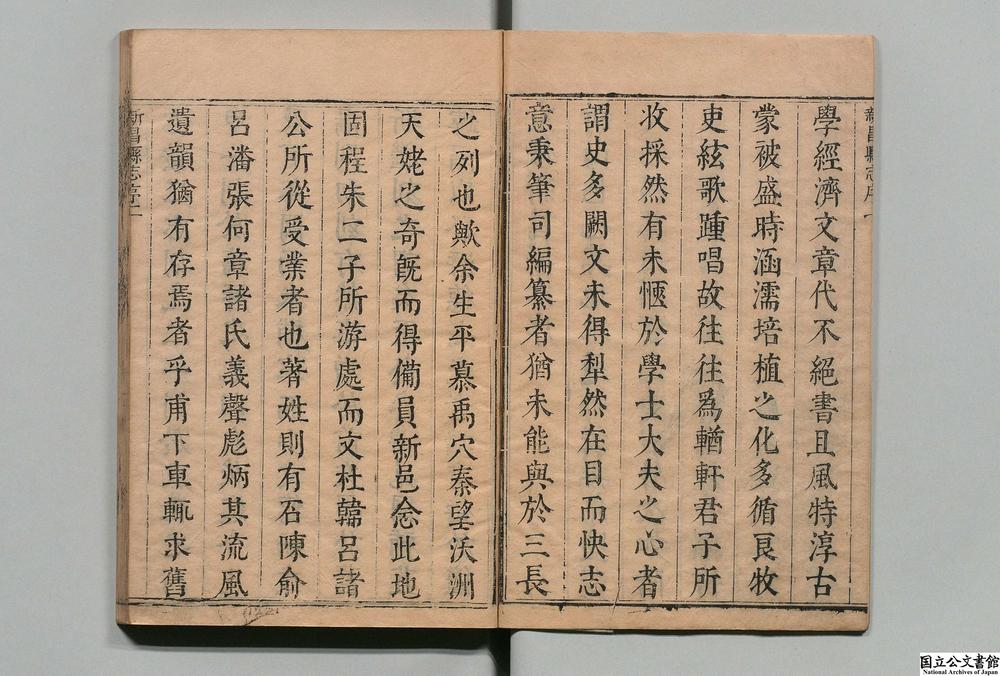 新昌縣志序一
學經濟文章代不絕書且風特淳古
蒙被盛時涵濡培植之化多循良牧
吏絃歌踵唱故往往爲輶軒君子所
收採然有未愜於學士大夫之心者
謂史多闕文未得犁然在目而快志
意秉筆司編纂者猶未能與於三長
之列也歟余生平慕禹穴秦望沃洲
天姥之奇旣而得備員新邑念此地
固程朱二子所游處而文杜韓呂諸
公所從受業者也著姓則有石陳俞
呂潘張何章諸氏義聲彪炳其流風
遺韻猶有存焉者乎甫下車輒求舊
新昌縣志序二
国立公文書館
National Archives of Japan